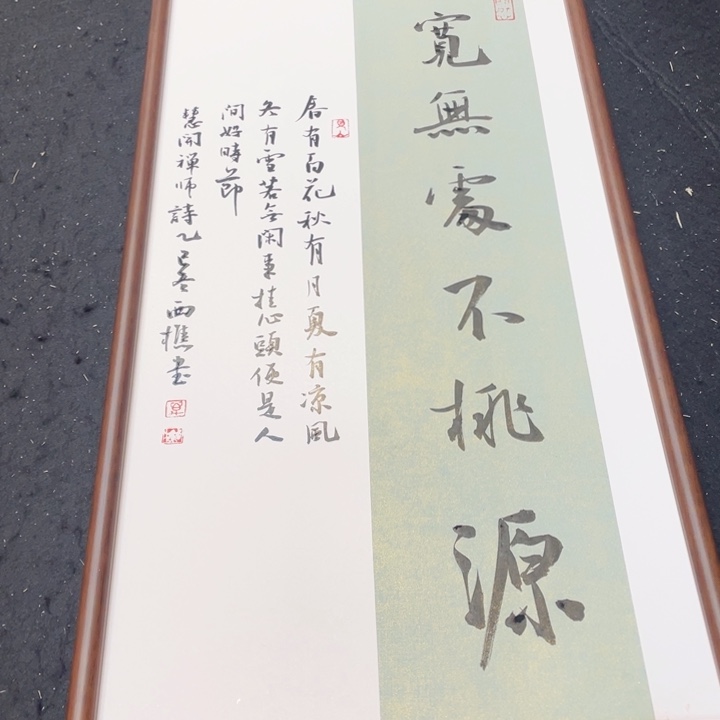 寬無處不桃源
春有百花秋有月夏有凉風
冬有雪若無闲事挂心頭便是人
间好時节
慧開禪师詩乙巳冬西樵书